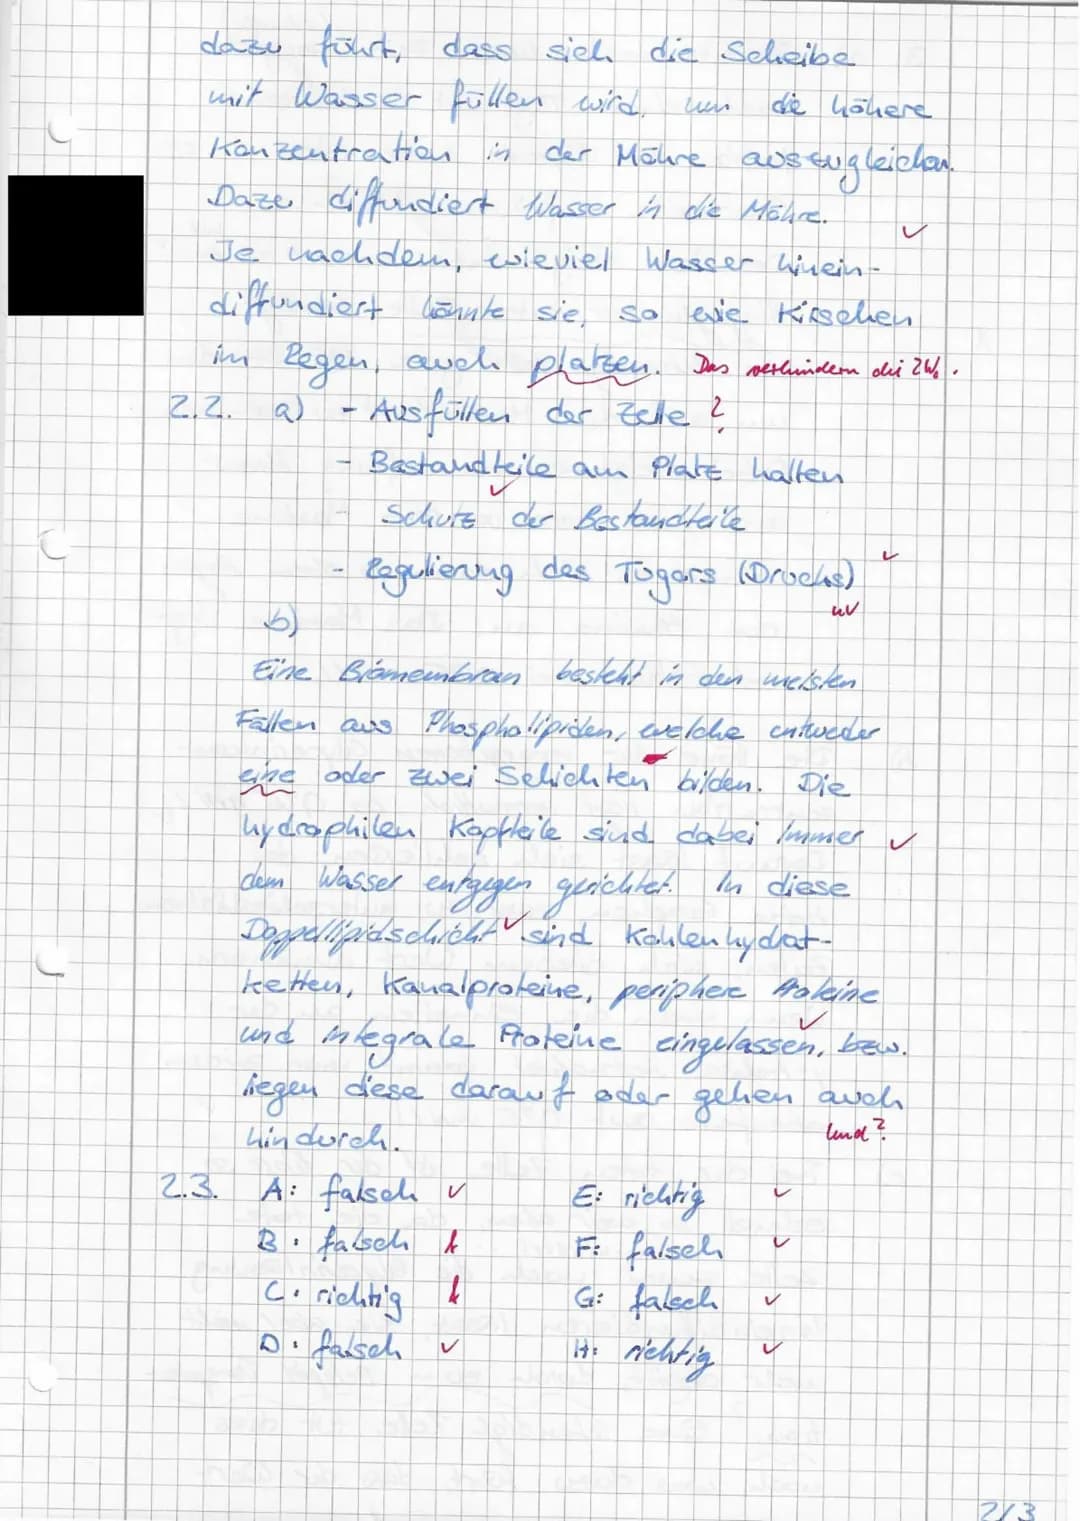 dazu führt, dass sich die Scheibe
mit Wasser füllen wird, um die höhere
Konzentration in der Möhre auszugleichen.
Dazu diffundiert Wasser in die Möhre. ✓
Je nachdem, wieviel Wasser hinein-
diffundiert könnte sie, so wie Kirschen
im Regen, auch platzen. Das verhindern die ZW.
2.2. a) - Ausfüllen der Zelle ?
- Bestandteile am Platz halten
✓
- Schutz der Bestandteile
- Regulierung des Tugors (Drucks) ✓
b)
Eine Biomembran besteht in den meisten
Fällen aus Phospholipiden, welche entweder
eine oder zwei Schichten bilden. Die
hydrophilen Kopfteile sind dabei immer ✓
dem Wasser entgegen gerichtet. In diese
Doppellipidschicht ✓ sind Kohlenhydrat-
ketten, Kanalproteine, periphere Proteine
und integrale Proteine ✓ eingelassen, bzw.
liegen diese darauf oder gehen auch
hindurch. Und?
2.3. A: falsch ✓ E: richtig ✓
B: falsch F: falsch ✓
C: richtig G: falsch ✓
D: falsch ✓ H: richtig ✓
2/3